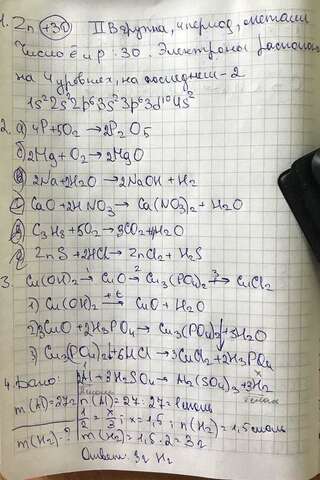 1. Zn +30 II B группа, 4 период, металл
Число ē и p : 30. Электроны располож
на 4 уровнях, на последнем - 2
1s² 2s² 2p⁶ 3s² 3p⁶ 3d¹⁰ 4s²
2. а) 4P + 5O₂ → 2P₂O₅
б) 2Mg + O₂ → 2MgO
2Na + 2H₂O → 2NaOH + H₂
CaO + 2HNO₃ → Ca(NO₃)₂ + H₂O
C₃H₈ + 5O₂ → 3CO₂ + 4H₂O
ZnS + 2HCl → ZnCl₂ + H₂S
3. Cu(OH)₂ →¹ CuO →² Cu₃(PO₄)₂ →³ CuCl₂
1) Cu(OH)₂ →+t CuO + H₂O
2) 3CuO + 2H₃PO₄ → Cu₃(PO₄)₂↓ + 3H₂O
3) Cu₃(PO₄)₂↓ + 6HCl → 3CuCl₂ + 2H₃PO₄
4. Дано: 2Al + 3H₂SO₄ → Al₂(SO₄)₃ + 3H₂
m(Al) = 27г n(Al) = 27 : 27 = 1 моль
1/2 = x/3 ; x = 1,5 ; n(H₂) = 1,5 моль
m(H₂) - ? m(H₂) = 1,5 · 2 = 3г
Ответ: 3г H₂